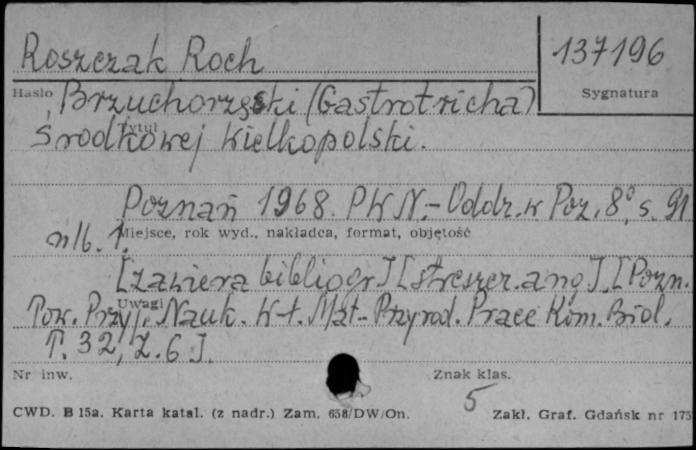 Roszczak Roch
137196
Hasło
Sygnatura
Brzuchorzęski (Gastrotricha)
Tytuł
środkowej Wielkopolski.
Poznań 1968. PWN.-Oddz. w Poz. 8°, s. 91
nlb. 1.
Miejsce, rok wyd., nakładca, format, objętość
[zawiera bibliogr] [streszcz. ang]. [Pozn.
Uwagi
Tow. Przyj. Nauk. W-ł. Mat-Przyrod. Prace Kom. Biol.
T. 32, Z. 6].
Nr inw.
Znak klas.
5
CWD. B 15a. Karta katal. (z nadr.) Zam. 658/DW/On.
Zakł. Graf. Gdańsk nr 175